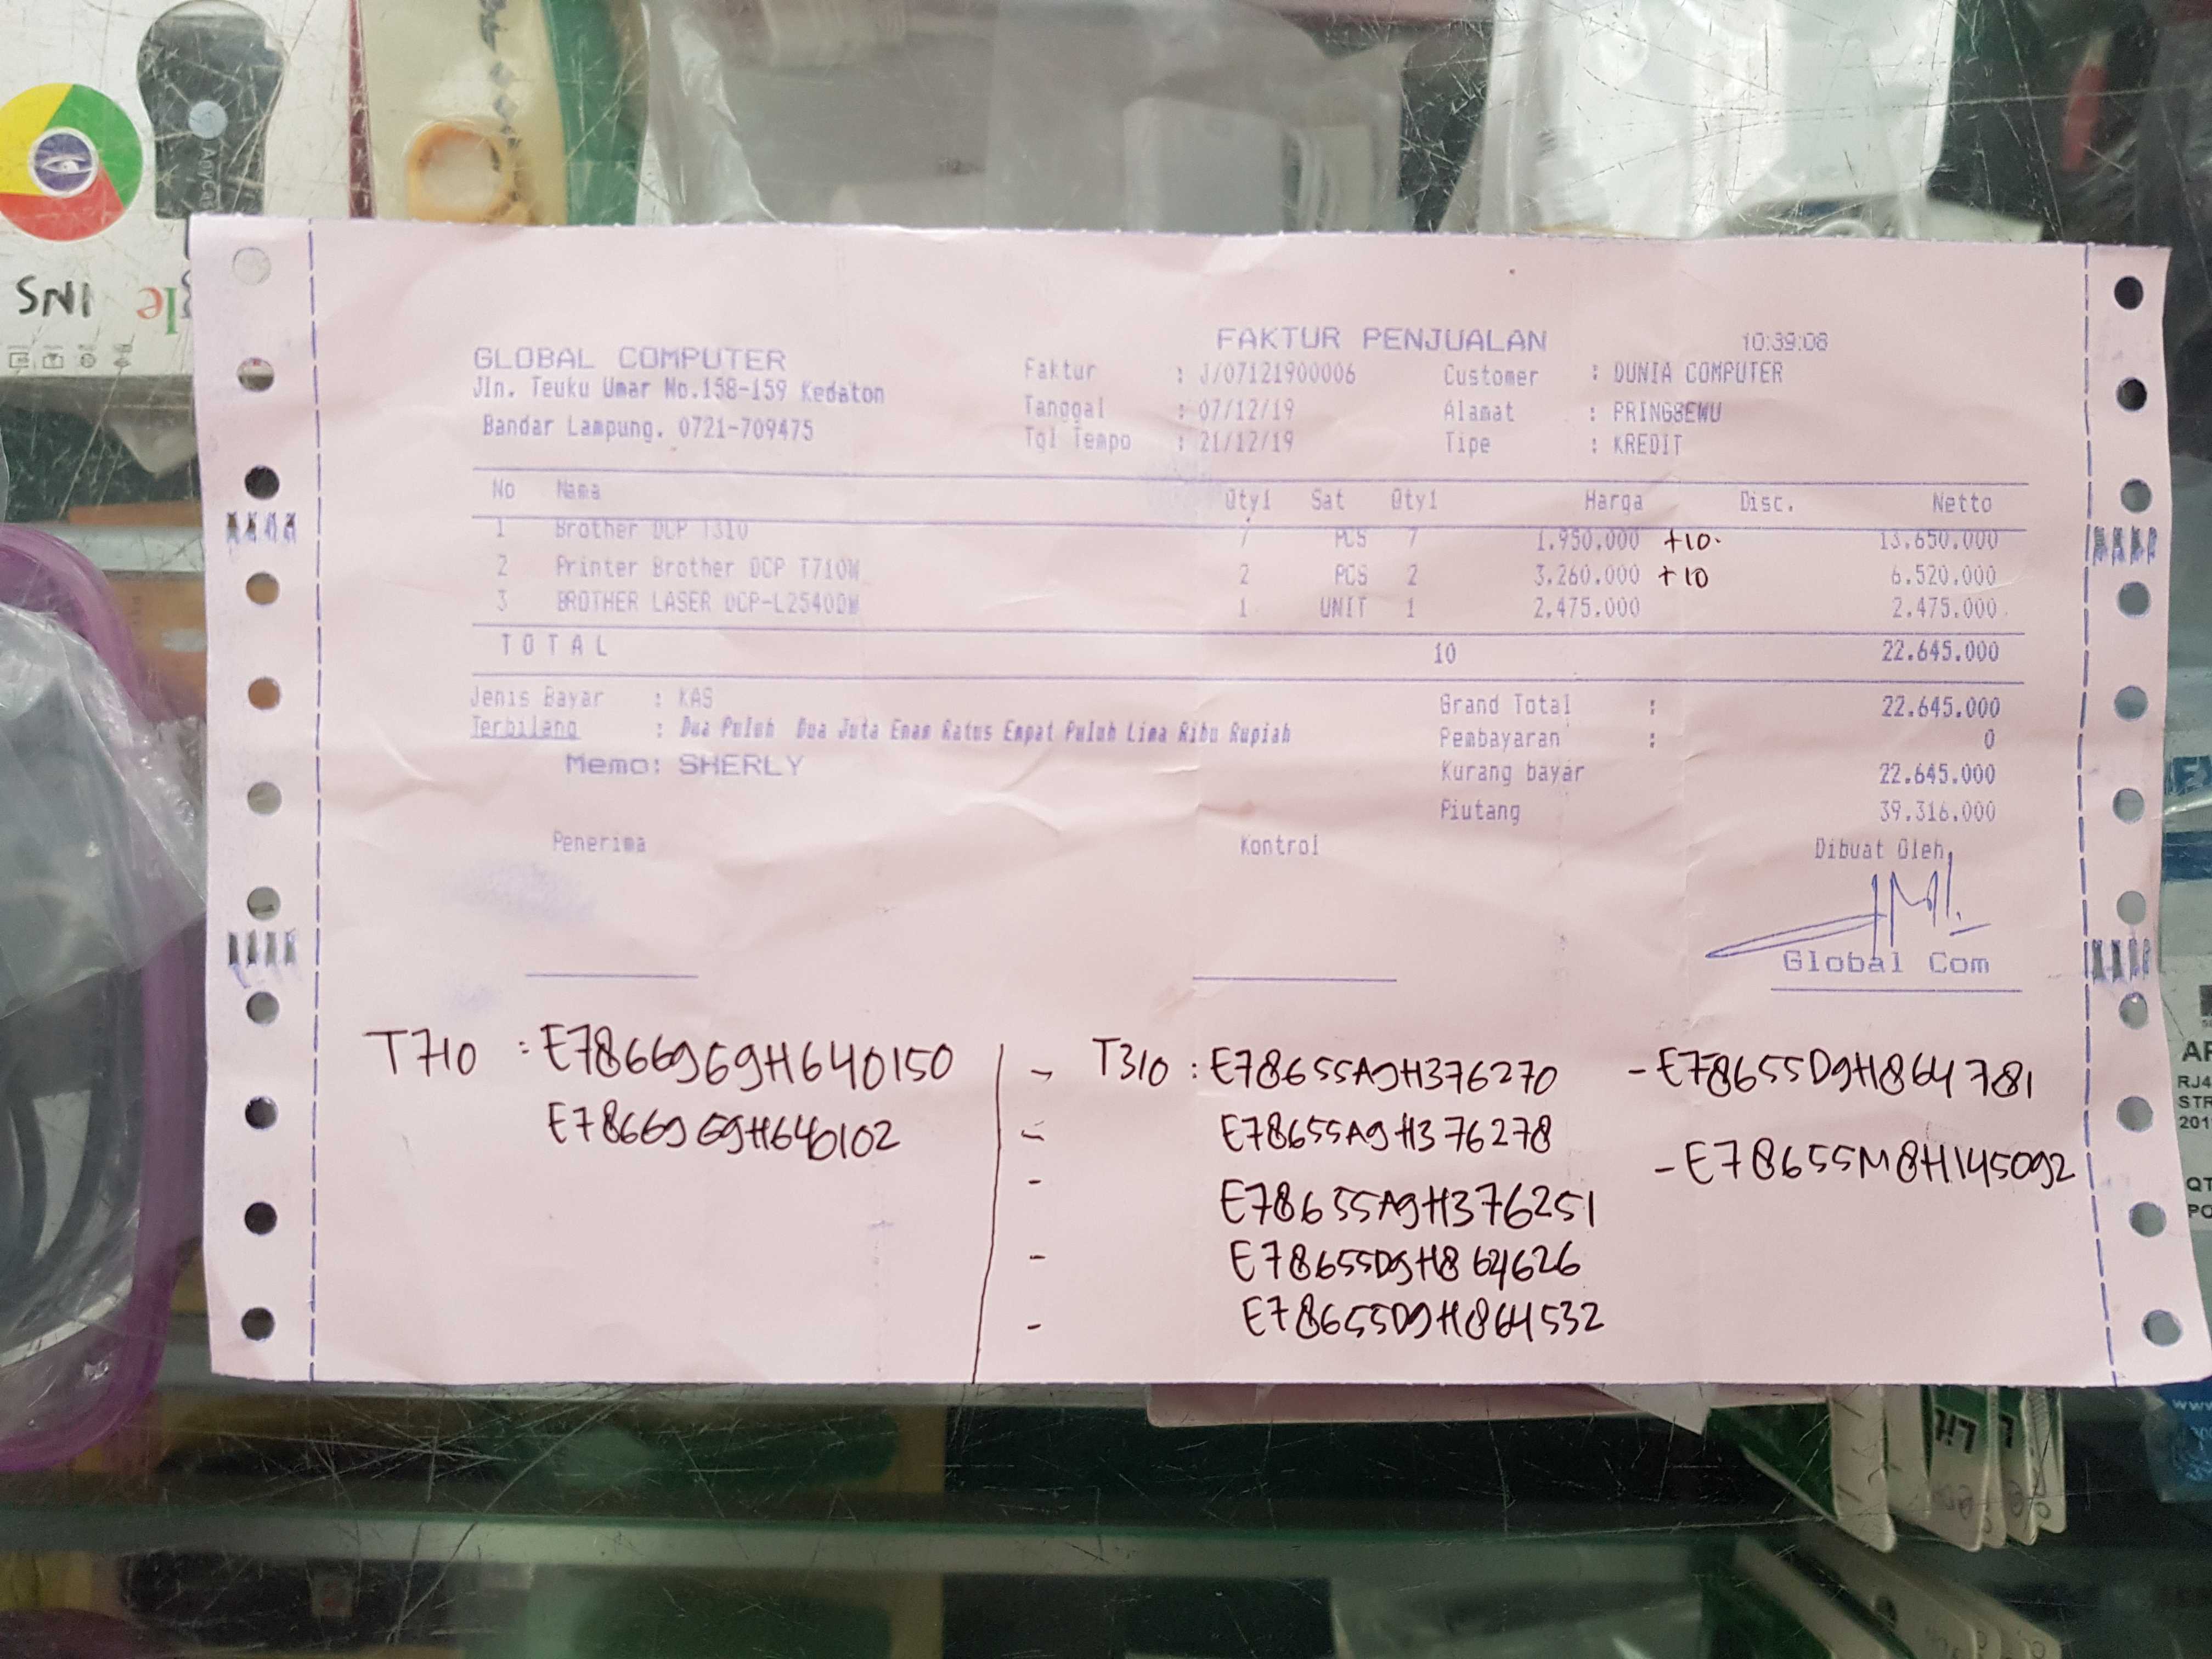 SNI
AnyCas
FAKTUR PENJUALAN 10:39:08
GLOBAL COMPUTER
Jln. Teuku Umar No.158-159 Kedaton
Bandar Lampung. 0721-709475
Faktur : J/07121900006 Customer : DUNIA COMPUTER
Tanggal : 07/12/19 Alamat : PRINGSEWU
Tgl Tempo : 21/12/19 Tipe : KREDIT
No Nama Qty1 Sat Qty1 Harga Disc. Netto
1 Brother DCP T310 7 PCS 7 1.950.000 +10. 13.650.000
2 Printer Brother DCP T710W 2 PCS 2 3.260.000 +10 6.520.000
3 BROTHER LASER DCP-L2540DW 1 UNIT 1 2.475.000 2.475.000
TOTAL 10 22.645.000
Jenis Bayar : KAS Grand Total : 22.645.000
Terbilang : Dua Puluh Dua Juta Enam Ratus Empat Puluh Lima Ribu Rupiah
Pembayaran : 0
Memo: SHERLY
Kurang bayar 22.645.000
Piutang 39.316.000
Penerima Kontrol Dibuat Oleh,
Global Com
T710 : E78669G9H640150
E78669G9H640102
- T310 : E78655A9H376270 - E78655D9H864781
- E78655A9H376278
- E78655M8H145092
- E78655A9H376251
- E78655D9H864626
- E78655D9H864532
RJ4
STR
201
QT
www